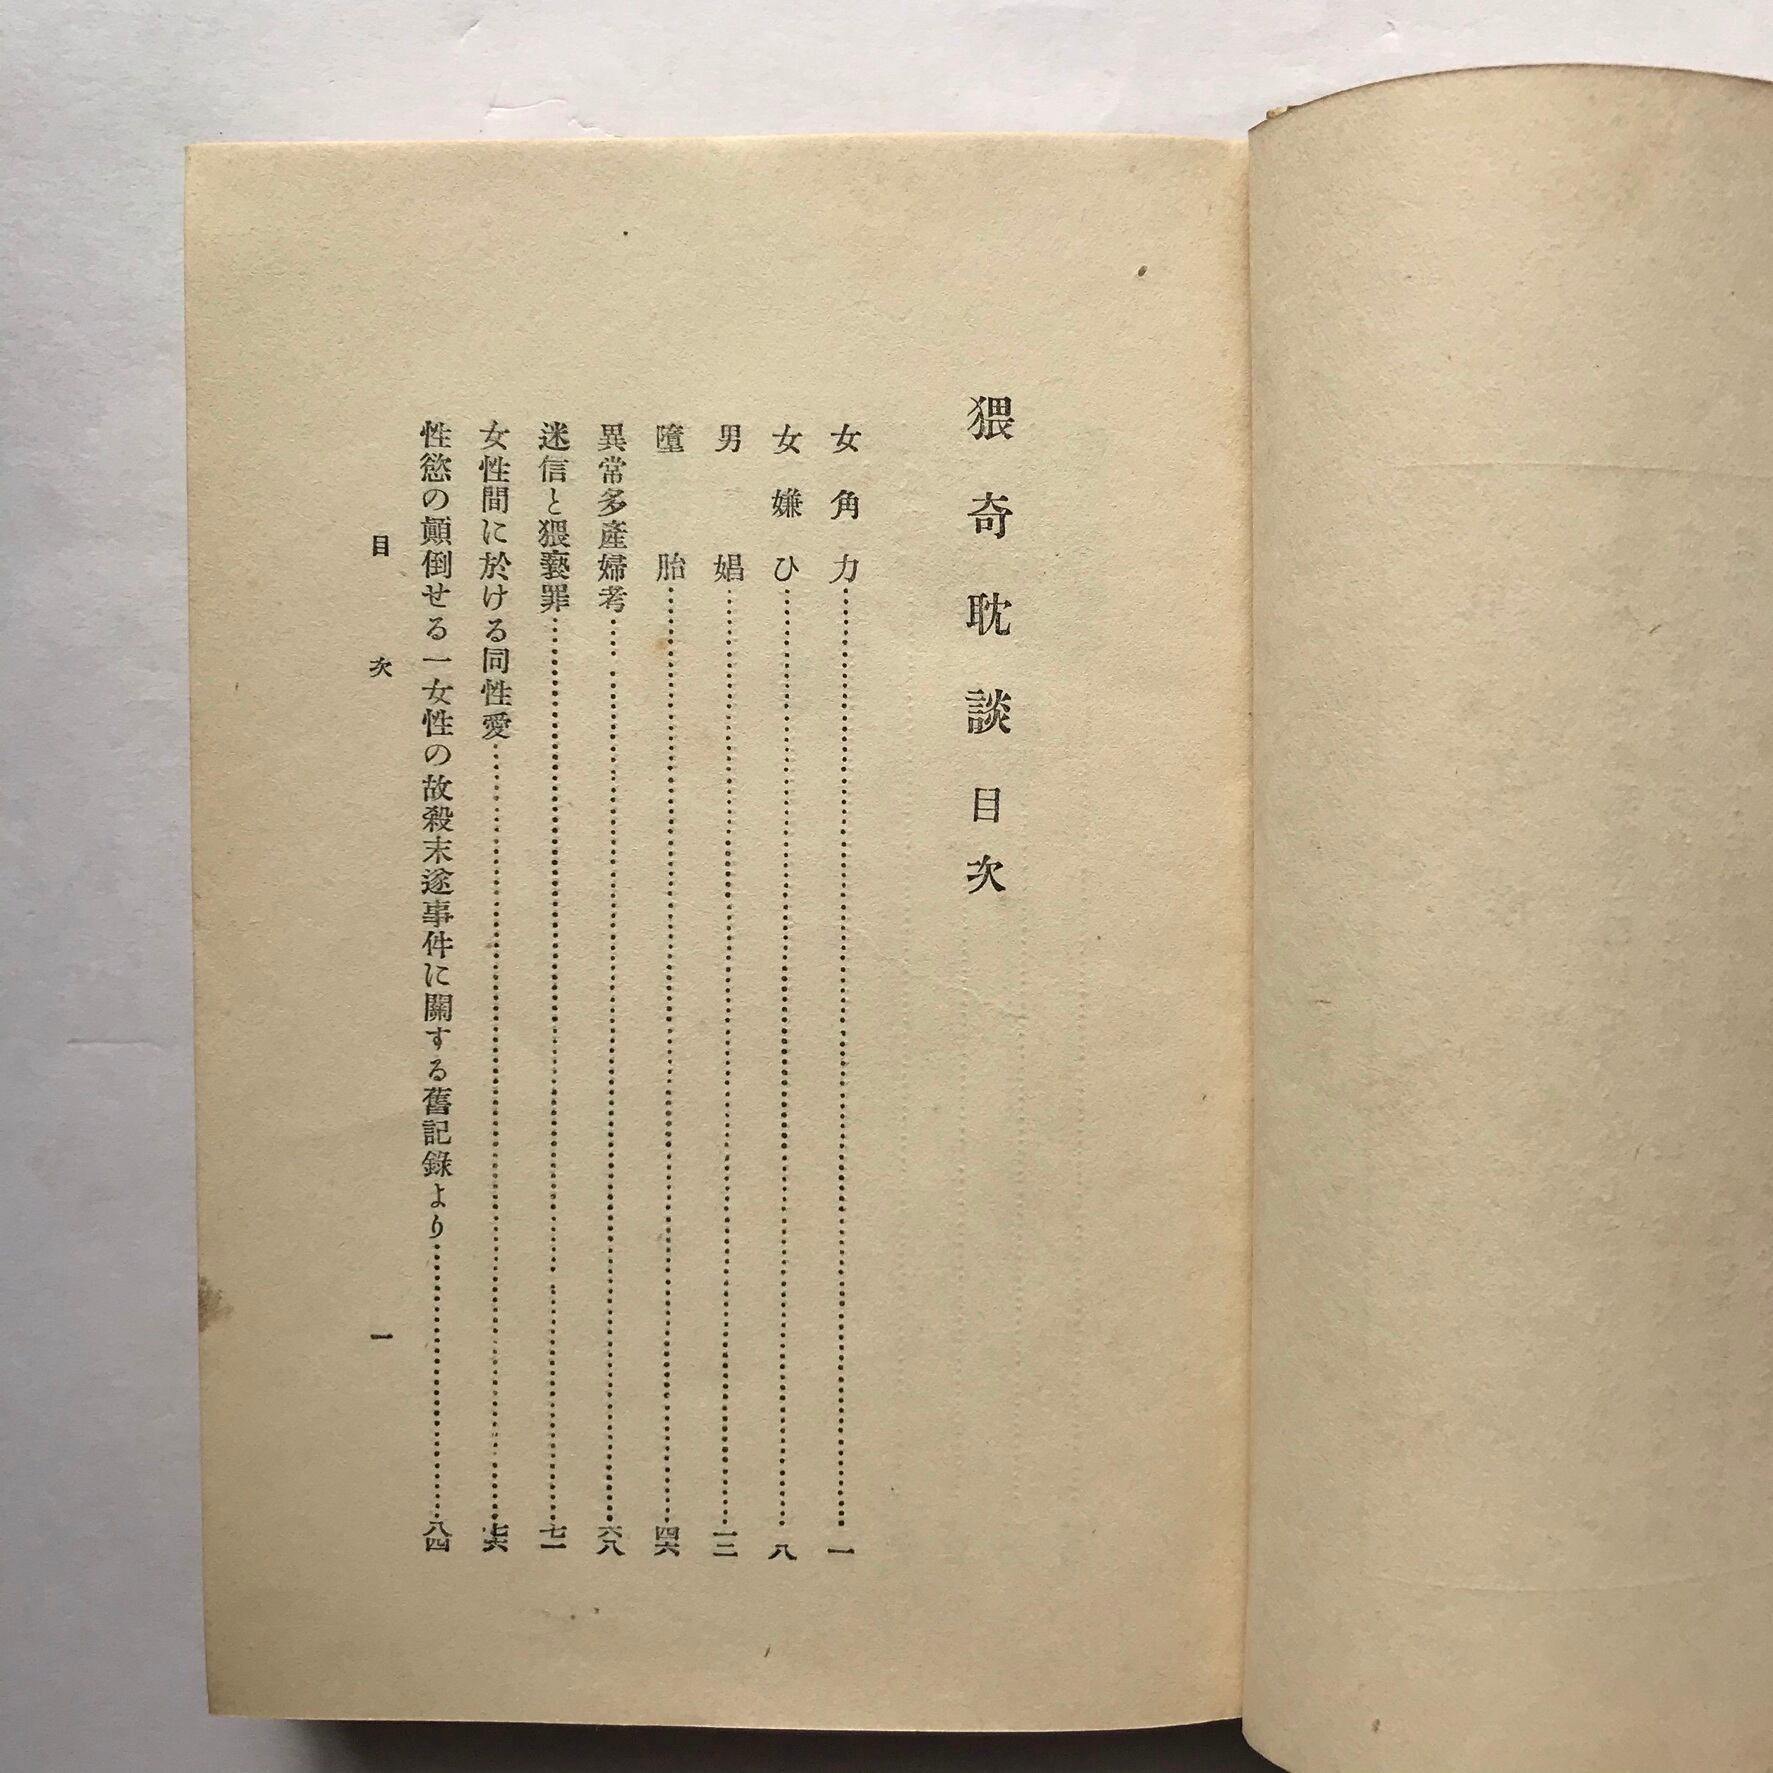 猥奇耽談目次
女角力……………一
女嫌ひ……………八
男娼……………一二
墮胎……………四六
異常多產婦考……………六八
迷信と猥褻罪……………七一
女性間に於ける同性愛……………七六
性慾の顚倒せる一女性の故殺未遂事件に關する舊記錄より……………八四
目次
一